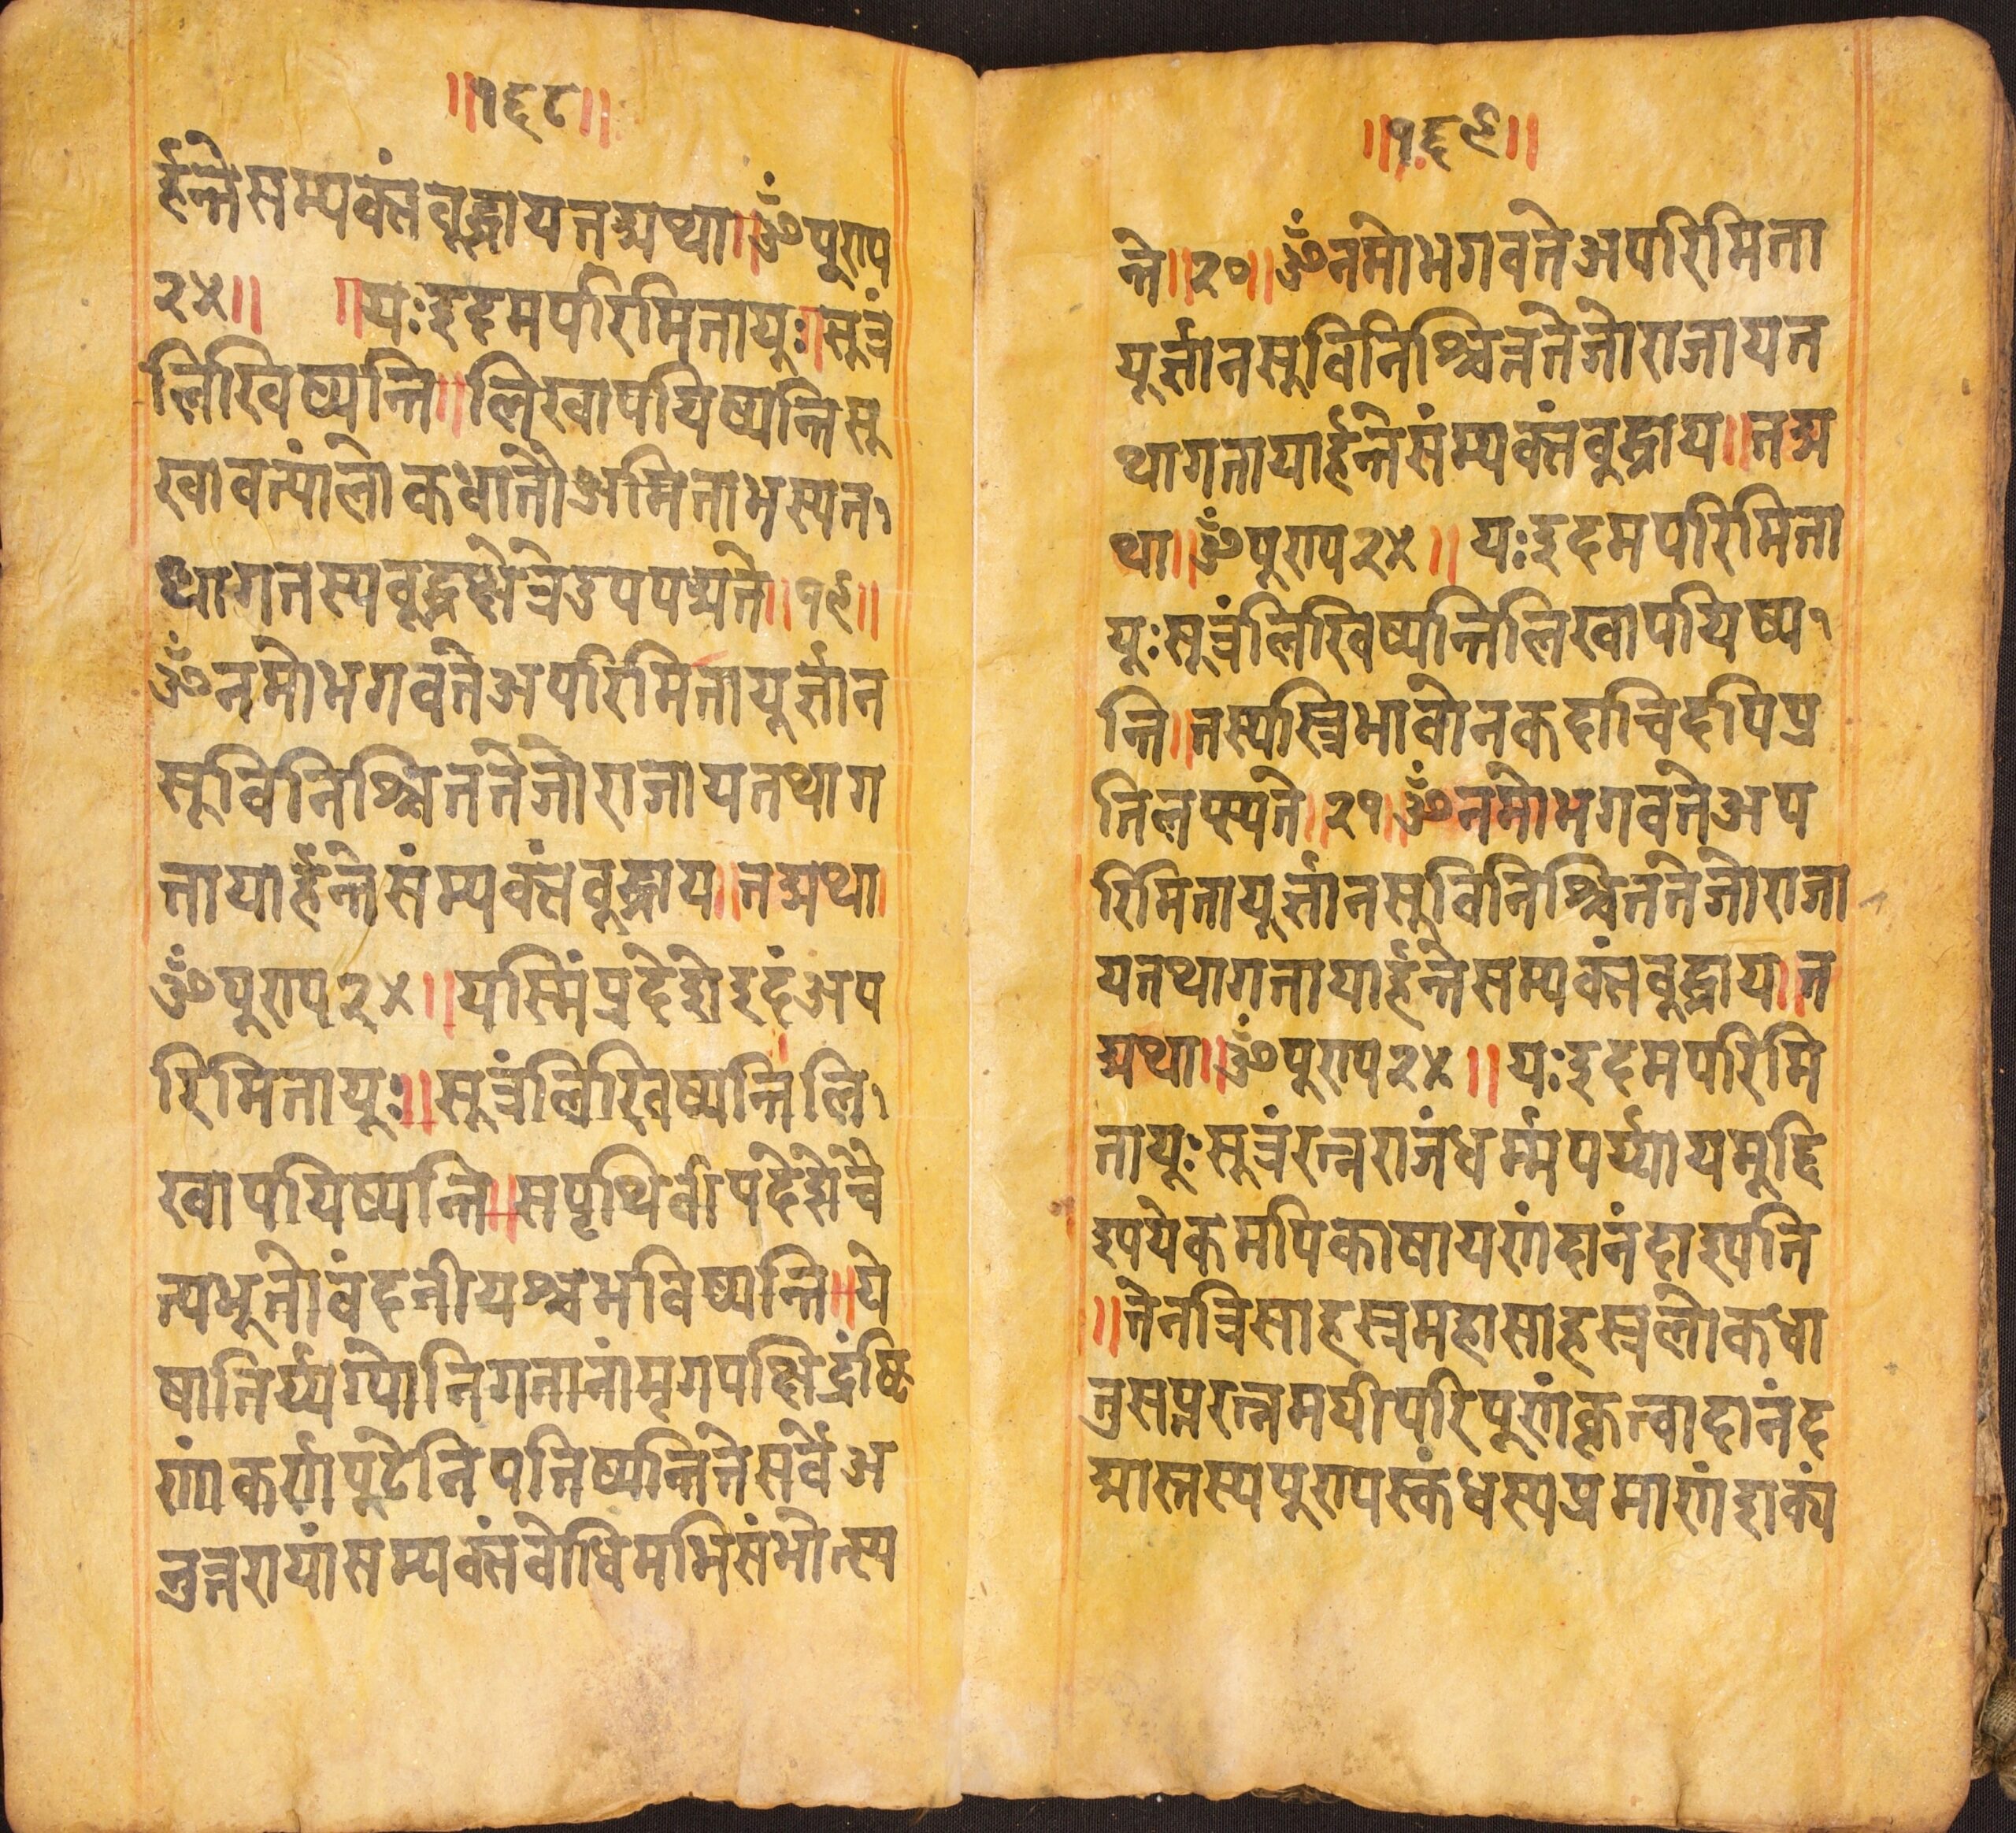 ॥१६८॥
र्हन्तेसम्यक्संबुद्धायतद्यथा॥ॐपुराप
२४॥ ॥यःइदमपरिमितायुः॥सुत्रं
लिखिष्यन्ति॥लिखापयिष्यन्तिसु
खावत्यांलोकधातौअमिताभस्यत
थागतस्यबुद्धक्षेत्रेउपपद्यते॥१९॥
ॐनमोभगवतेअपरिमितायुर्ज्ञान
सुविनिश्चिततेजोराजायतथाग
तायार्हन्तेसंम्यक्संबुद्धाय॥तद्यथा
ॐपुराप२४॥यस्मिंप्रदेशेइदंअप
रिमितायुः॥सुत्रंलिखिष्यन्तिलि
खापयिष्यन्ति॥सपृथिवीपदेशेचै
त्यभूतोवंदनीयश्चभविष्यन्ति॥ये
षातिर्य्यग्योनिगतानांमृगपक्षिद्रंष्ट्रि
णांकर्णपुटेनिपतिष्यन्तितेसर्वेअ
नुत्तरायांसम्यक्संबोधिमभिसंभोत्स्य
॥१६९॥
न्ते॥२०॥ॐनमोभगवतेअपरिमिता
युर्ज्ञानसुविनिश्चिततेजोराजायत
थागतायार्हन्तेसंम्यक्संबुद्धाय॥तद्य
था॥ॐपुराप२४॥यःइदमपरिमिता
युःसुत्रंलिखिष्यन्तिलिखापयिष्य
न्ति॥तस्यस्त्रिभावोनकदाचिदपिप्र
तिलप्स्यते॥२१॥ॐनमोभगवतेअप
रिमितायुर्ज्ञानसुविनिश्चिततेजोराजा
यतथागतायार्हन्तेसम्यक्संबुद्धाय॥त
द्यथा॥ॐपुराप२४॥यःइदमपरिमि
तायुःसुत्रंरत्नराजंधर्म्मपर्य्यायमुद्दि
श्ययेकमपिकाषायणंदानंदाश्यति
॥तेनत्रिसाहस्रमहासाहस्रलोकधा
तुसप्तरत्नमयीपरिपुर्णंकृत्वादानंद
द्यात्तस्यपुरापस्कंधस्यप्रमाणंशक्यं